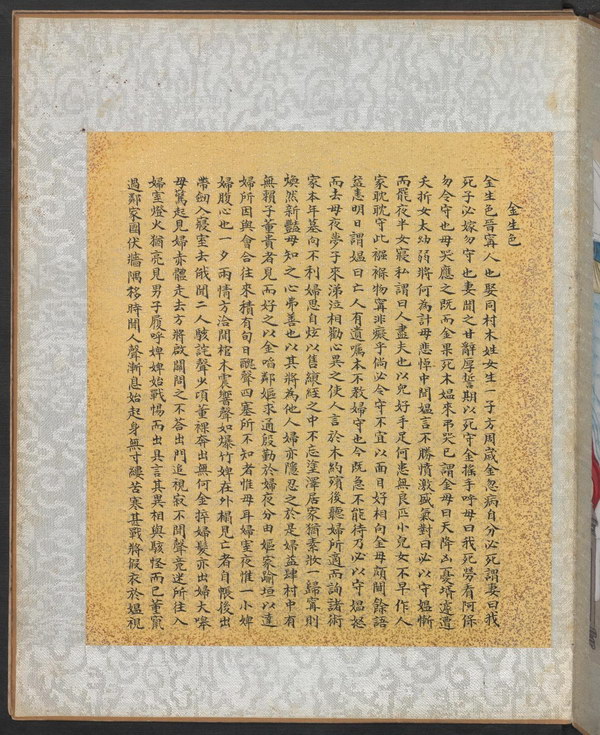 金生色
金生色晉寧人也娶同村木姓女生一子方周歲金忽病自分必死謂妻曰我
死子必嫁勿守也妻聞之甘辭厚誓期以死守金搖手呼母曰我死勞看阿保
勿令守也母哭應之既而金果死木媼來弔哭已謂金母曰天降凶憂壻遽遭
夭折女太幼弱將何為計母悲悼中聞媼言不勝憤激盛氣對曰必以守媼慚
而罷夜半女寢私謂曰人盡夫也以兒好手足何患無良匹小兒女不早作人
家眈眈守此襁褓物寧非癡乎倘必令守不宜以面目好相向金母頗聞餘語
益恚明日謂媼曰亡人有遺囑本不教婦守也今既急不能待乃必以守媼怒
而去母夜夢子來涕泣相勸心異之使人言於木約殯後聽婦所適而詢諸術
家本年墓向不利婦思自炫以售縗絰之中不忘塗澤居家猶素妝一歸寧則
嶄然新豔母知之心弗善也以其將為他人婦亦隱忍之於是婦益肆村中有
無賴子董貴者見而好之以金啗鄰嫗求通殷勤於婦夜分由嫗家踰垣以達
婦所因與會合往來積有旬日醜聲四塞所不知者惟母耳婦室夜惟一小婢
婦腹心也一夕兩情方洽聞棺木震響聲如爆竹婢在外榻見亡者自幛後出
帶劍入寢室去俄聞二人駭詫聲少頃董裸奔出無何金捽婦髮亦出婦大嗥
母驚起見婦赤體走去方將啟關問之不答出門追視寂不聞聲竟迷所往入
婦室燈火猶亮見男子履呼婢婢始戰惕而出具言其異相與駭怪而已董竄
過鄰家團伏牆隅移時聞人聲漸息始起身無寸縷苦寒甚戰將假衣於媼視